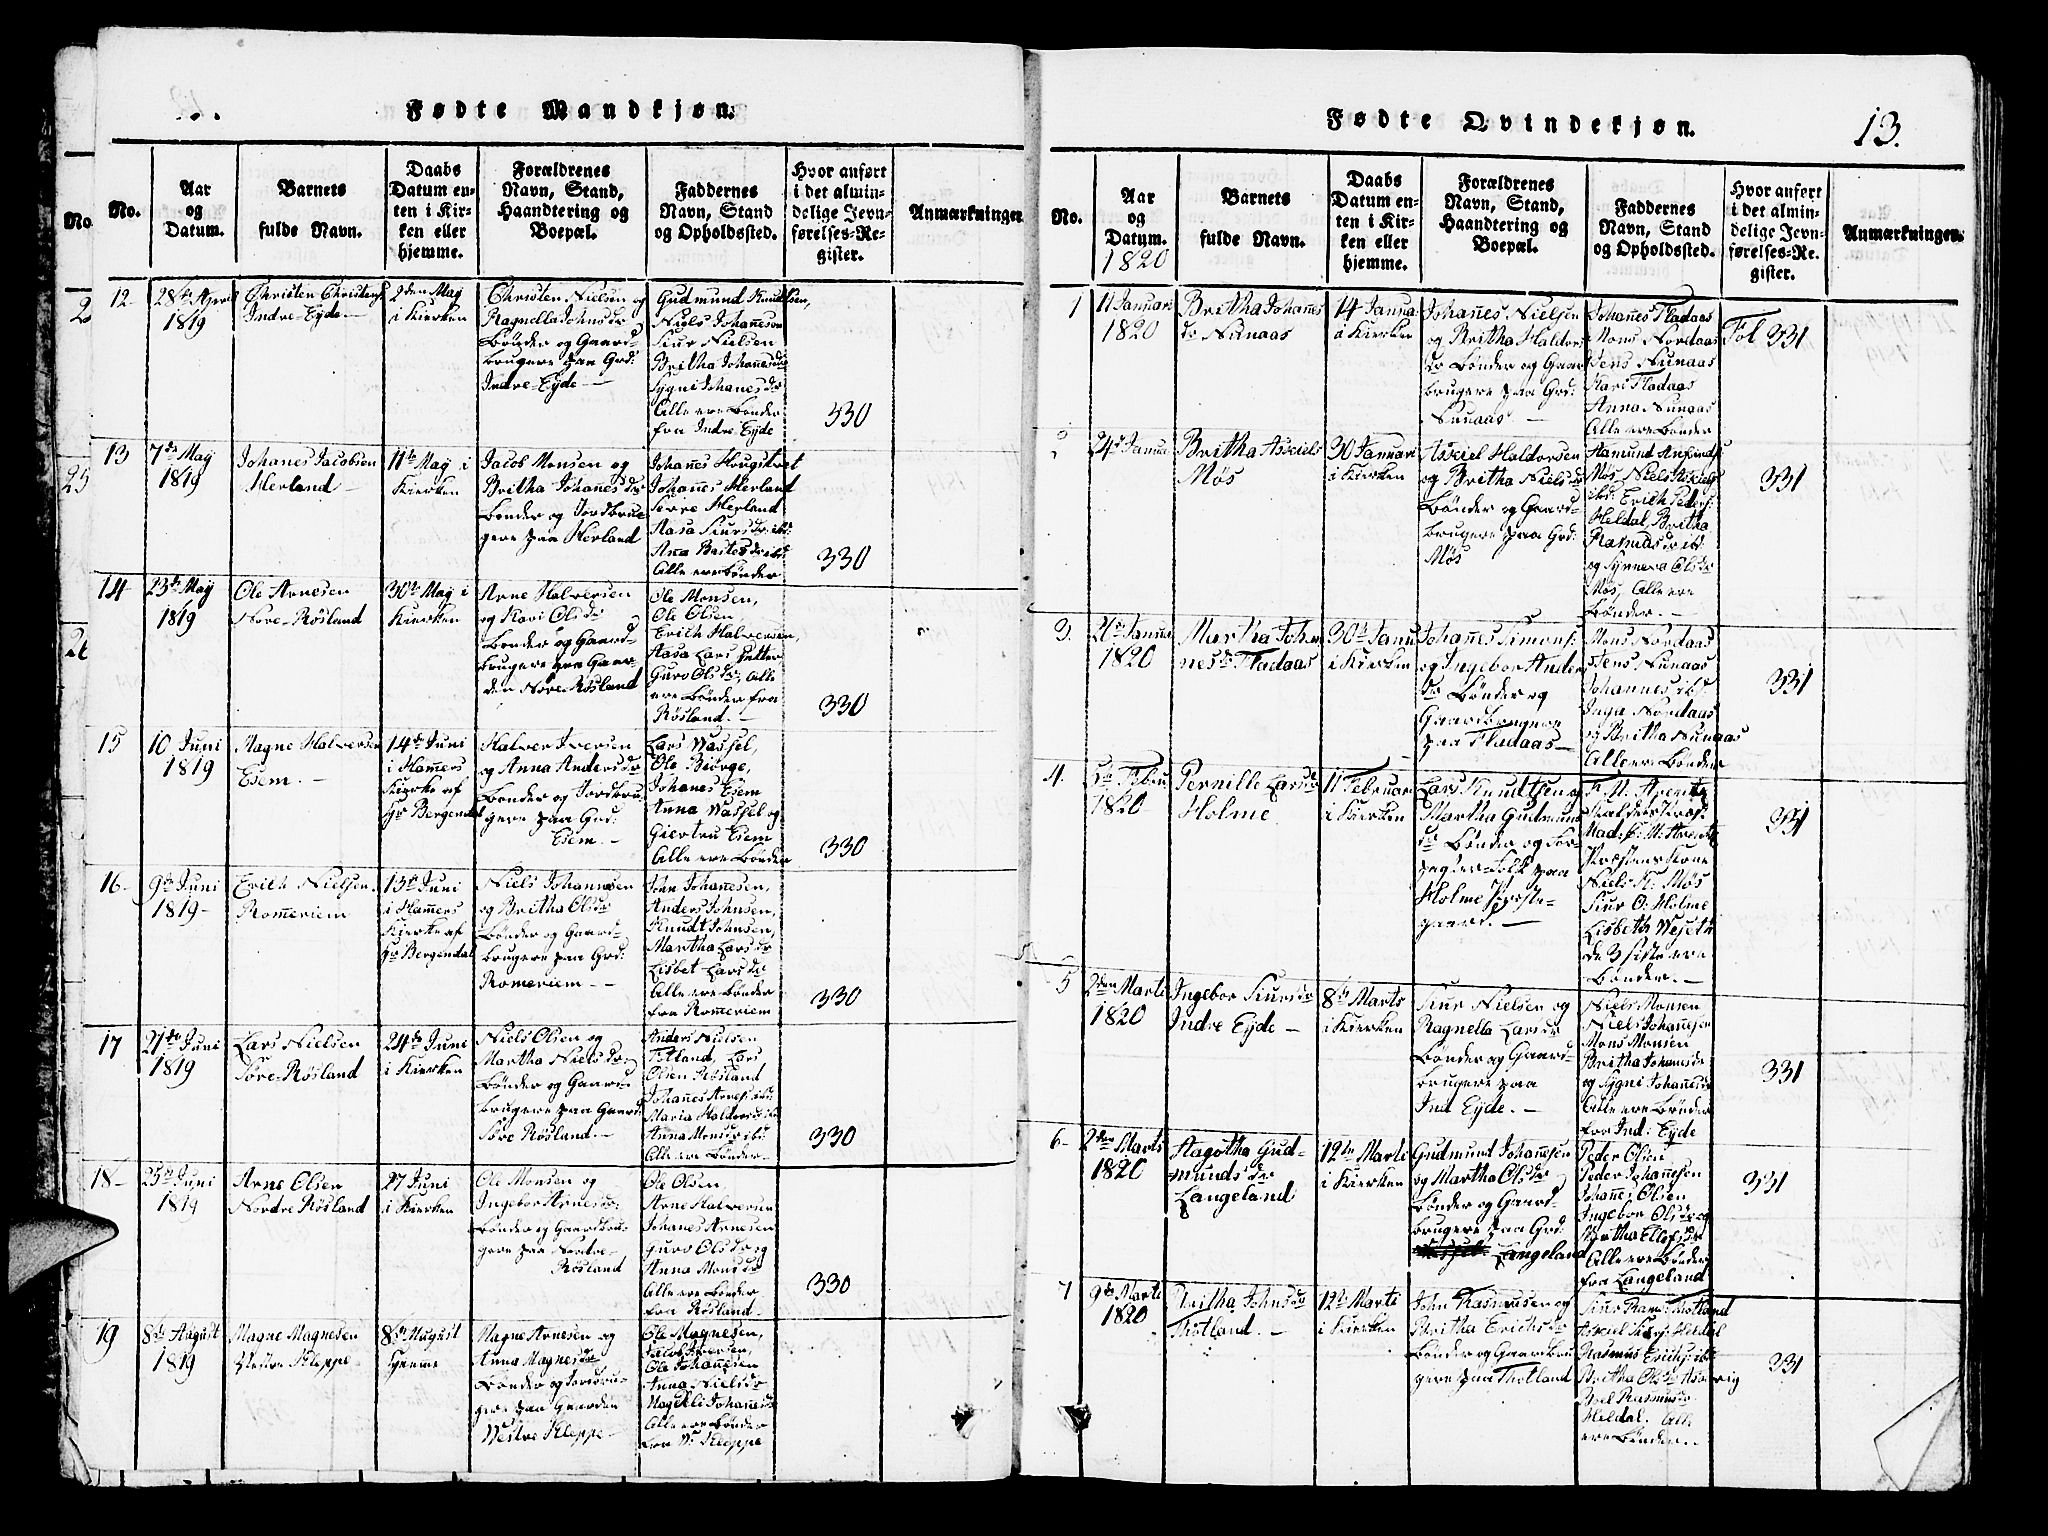 Fødte Mandkjøn.
No.
Aar
og
Datum.
Barnets
fulde Navn.
Daabs
Datum en-
ten i Kir-
ken eller
hjemme.
Forældrenes
Navn, Stand,
Haandtering og
Boepæl.
Faddernes
Navn, Stand
og Opholdssted.
Hvor anført
i det almin-
delige Jevn-
førelses-Re-
gister.
Anmærkninger
12
28de April
1819
Christen Christens:
Indre-Eyde
2den May
i Kierken
Christen Nielsen og
Ragnella Johns dr
Bønder og Gaard-
brugere paa Grd:
Indre-Eyde
Gudmund Knudsen,
Niels Johannesen
Siur Nielsen
Britha Johannesdr
Sygni Johanes dr
Alle ere Bønder
fra Indre Eyde
330
13
7de May
1819
Johanes Jacobsen
Herland
11te May i
Kierken
Jacob Monsen og
Britha Johanes dr
Bønder og Jordbru
gere paa Herland
Johanes
Johanes Herland
Herland
Aasa Siurs dr ibd:
Alle ere Bønder
330
14
23de May
1819
Ole Arnesen
Nore-Røsland
30te May i
Kierken
Arne Halversen
og Kari Ols dr
Bønder og Gaard-
brugere paa Gaar-
den Nore Røsland
Ole Monsen,
Ole Olsen,
Erich Halversen,
Aasa Lars Datter
Guro Ols dr, Alle
ere Bønder fra
Røsland.
330
15
10 Juni
1819
Magne Halversen
Esem.
14de Juni
i Hamers
Kierke af
Hr Bergendal
Halver Iversen
og Anna Anders dr
Bønder og Jordbru
gere paa Grd:
Esem.
Lars Wassel,
Ole Biørge,
Johanes Esem
Anna Wassel og
Giertru Esem
Alle ere Bønder
330
16
9de Juni
1819
Erich Nielsen
Romeriem
13de Juni
i Hamers
Kierke af
Hr Bergendal
Niels Johannesen
og Britha Ols dr
Bønder og Gaard-
brugere paa Grd:
Romeriem
John Johanesen,
Anders Johnsen,
Knudt Johnsen,
Martha Lars dr
Lisbet Lars dr
Alle ere Bønder
fra Romeriem
330
17
21de Juni
1819
Lars Nielsen
Søre-Røsland
24de Juni
i Kierken
Niels Olsen og
Martha Niels dr
Bønder og Gaard-
brugere paa Gaard:
Søre Røsland.
Anders Nielsen
Totland, Lars
Olsen Røsland
Johanes Arnes: ibd:
Maria Haldors dr ibd
Anna Mons dr ibd
Alle ere Bønder
330
18
25de Juni
1819
Arne Olsen
Nordre Røsland
27 Juni
i Kierken
Ole Monsen og
Ingebor Arnes dr
Bønder og Gaardbru-
gere paa Nordre-
Røsland
Ole Olsen,
Arne Halversen
Johanes Arnesen
Guro Ols dr og
Anna Mons dr
Alle ere Bønder
fra Røsland.
330
19
8de August
1819
Magne Magnesen
Westre Kleppe
8de August
hjemme
Magne Arnesen og
Anna Magnes dr
Bønder og Jordbru-
gere paa Gaarden
Westre Kleppe
Ole Magnesen,
Jacob Iversen,
Ole Johanesen
Anna Niels dr
Magnli Johanes dr
Alle ere Bønder
fra W: Kleppe
Fødte Qvindekjøn.
13.
No.
Aar
og
Datum.
1820
Barnets
fulde Navn.
Daabs
Datum en-
ten i Kir-
ken eller
hjemme.
Forældrenes
Navn, Stand,
Haandtering og
Boepæl.
Faddernes
Navn, Stand
og Opholdssted.
Hvor anført
i det almin-
delige Jevn-
førelses-Re-
gister.
Anmærkninger.
1
11 Januari
1820
Britha Johanes
dr Nunaas
14 Janua
i Kierken
Johanes Nielsen
og Britha Haldors
dr Bønder og Gaard
brugere paa Grd:
Nunaas
Johanes Fladaas
Mons Nordaas
Jens Nunaas
Kari Fladaas
Anna Nunaas
Alle ere Bønder
Fol 331
2
24d Janua
Britha Askiels
Møs
30 Januari
i Kierken
Askiel Haldorsen
og Britha Niels dr
Bønder og Gaard-
brugere paa Grd:
Møs
Hamund
Møs, Niels Askiels:
ibd: Erich Peders:
Heldal, Britha
Rasmus dr ibd:
og Synneva Ols dr
Møs, Alle ere
Bønder.
331
3.
1820
Martha Johan
nes dr Fladaas
30te Janu
i Kierken
Johanes Simons:
og Ingebor Anders
dr Bønder og
Gaardbrugere
paa Fladaas
Mons Nordaas
Jens Nunaas
Johannes ibd:
Inga Nordaas
og Britha Nunaas
Alle ere Bønder
331
4.
5te Febru
1820
Pernille Lars dr
Holme
11 Februari
i Kierken
Lars Knudtsen og
Martha Gudmunds
dr Bønder og For-
pagter-Folk paa
Holme Præste-
gaard.
Niels K: Møs
Siur O: Holme
Lisbeth
de 3 sidste ere
Bønder.
331
5
2den Marti
1820
Ingebor Siurs dr
Indre Eyde
8de Marts
i Kierken
Siur Nielsen og
Ragnella Lars dr
Bønder og Gaard-
brugere paa
Ind Eyde.
Niels Monsen
Niels Johanesen
Mons Monsen
Britha Johans dr
og Sygni Johanes dr
Alle ere Bønder
fra Ind: Eyde
331
6
2den Marts
1820
Aagotha Gud-
munds dr
Langeland
12te Marti
i Kierken
Gudmund Johannesen
og Martha Ols dr
Bønder og Gaard-
brugere paa Grd:
Langeland
Peder Olsen
Peder Johannesen
Johanes Olsen
Ingebor Ols dr og
Alle ere Bønder
fra Langeland
331
7
9de Marti
1820
Britha Johns dr
Thotland.
12te Marti
i Kierken
John Rasmusen og
Britha Erichs dr
Bønder og Gaardbru
gere paa Thotland
Siur Thotland
Heldal
Rasmus Erichs: ibd
Britha Ols dr
Rasmus dr
Heldal. Alle
ere Bønder.
331